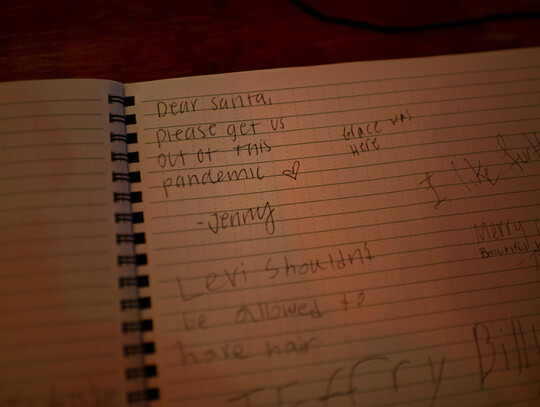 Dear santa,
please get us
out of this
pandemic ♡
-Jenny
Grace was
HERE
I like
Merry
Beautiful
Levi Shouldnt
be allowed to
have hair.
JEffry Billy